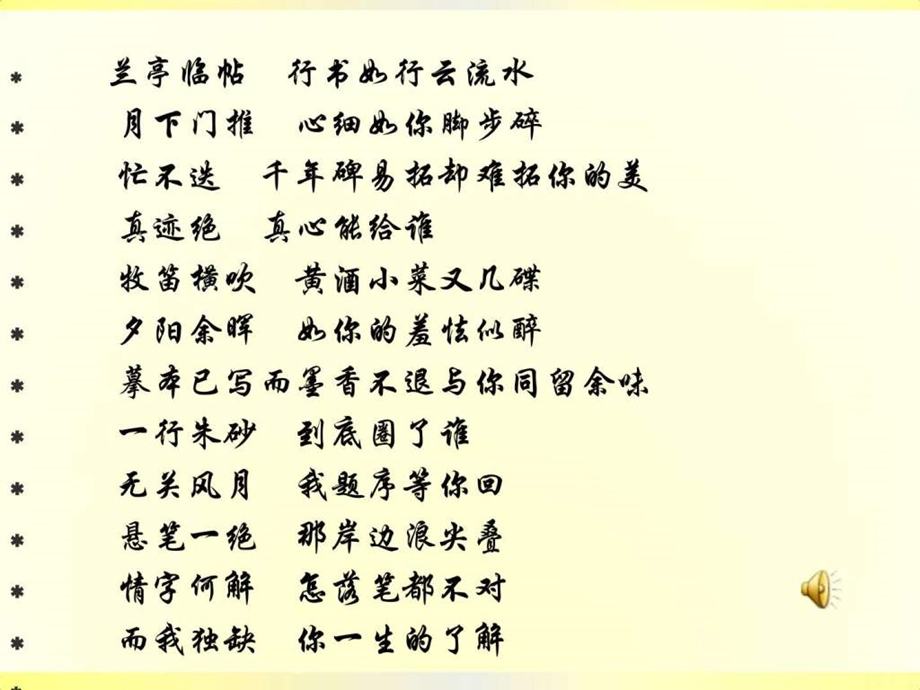 兰亭临帖 行书如行云流水
月下门推 心细如你脚步碎
忙不迭 千年碑易拓却难拓你的美
真迹绝 真心能给谁
牧笛横吹 黄酒小菜又几碟
夕阳余晖 如你的羞怯似醉
摹本已写而墨香不退与你同留余味
一行朱砂 到底圈了谁
无关风月 我题序等你回
悬笔一绝 那岸边浪尖叠
情字何解 怎落笔都不对
而我独缺 你一生的了解